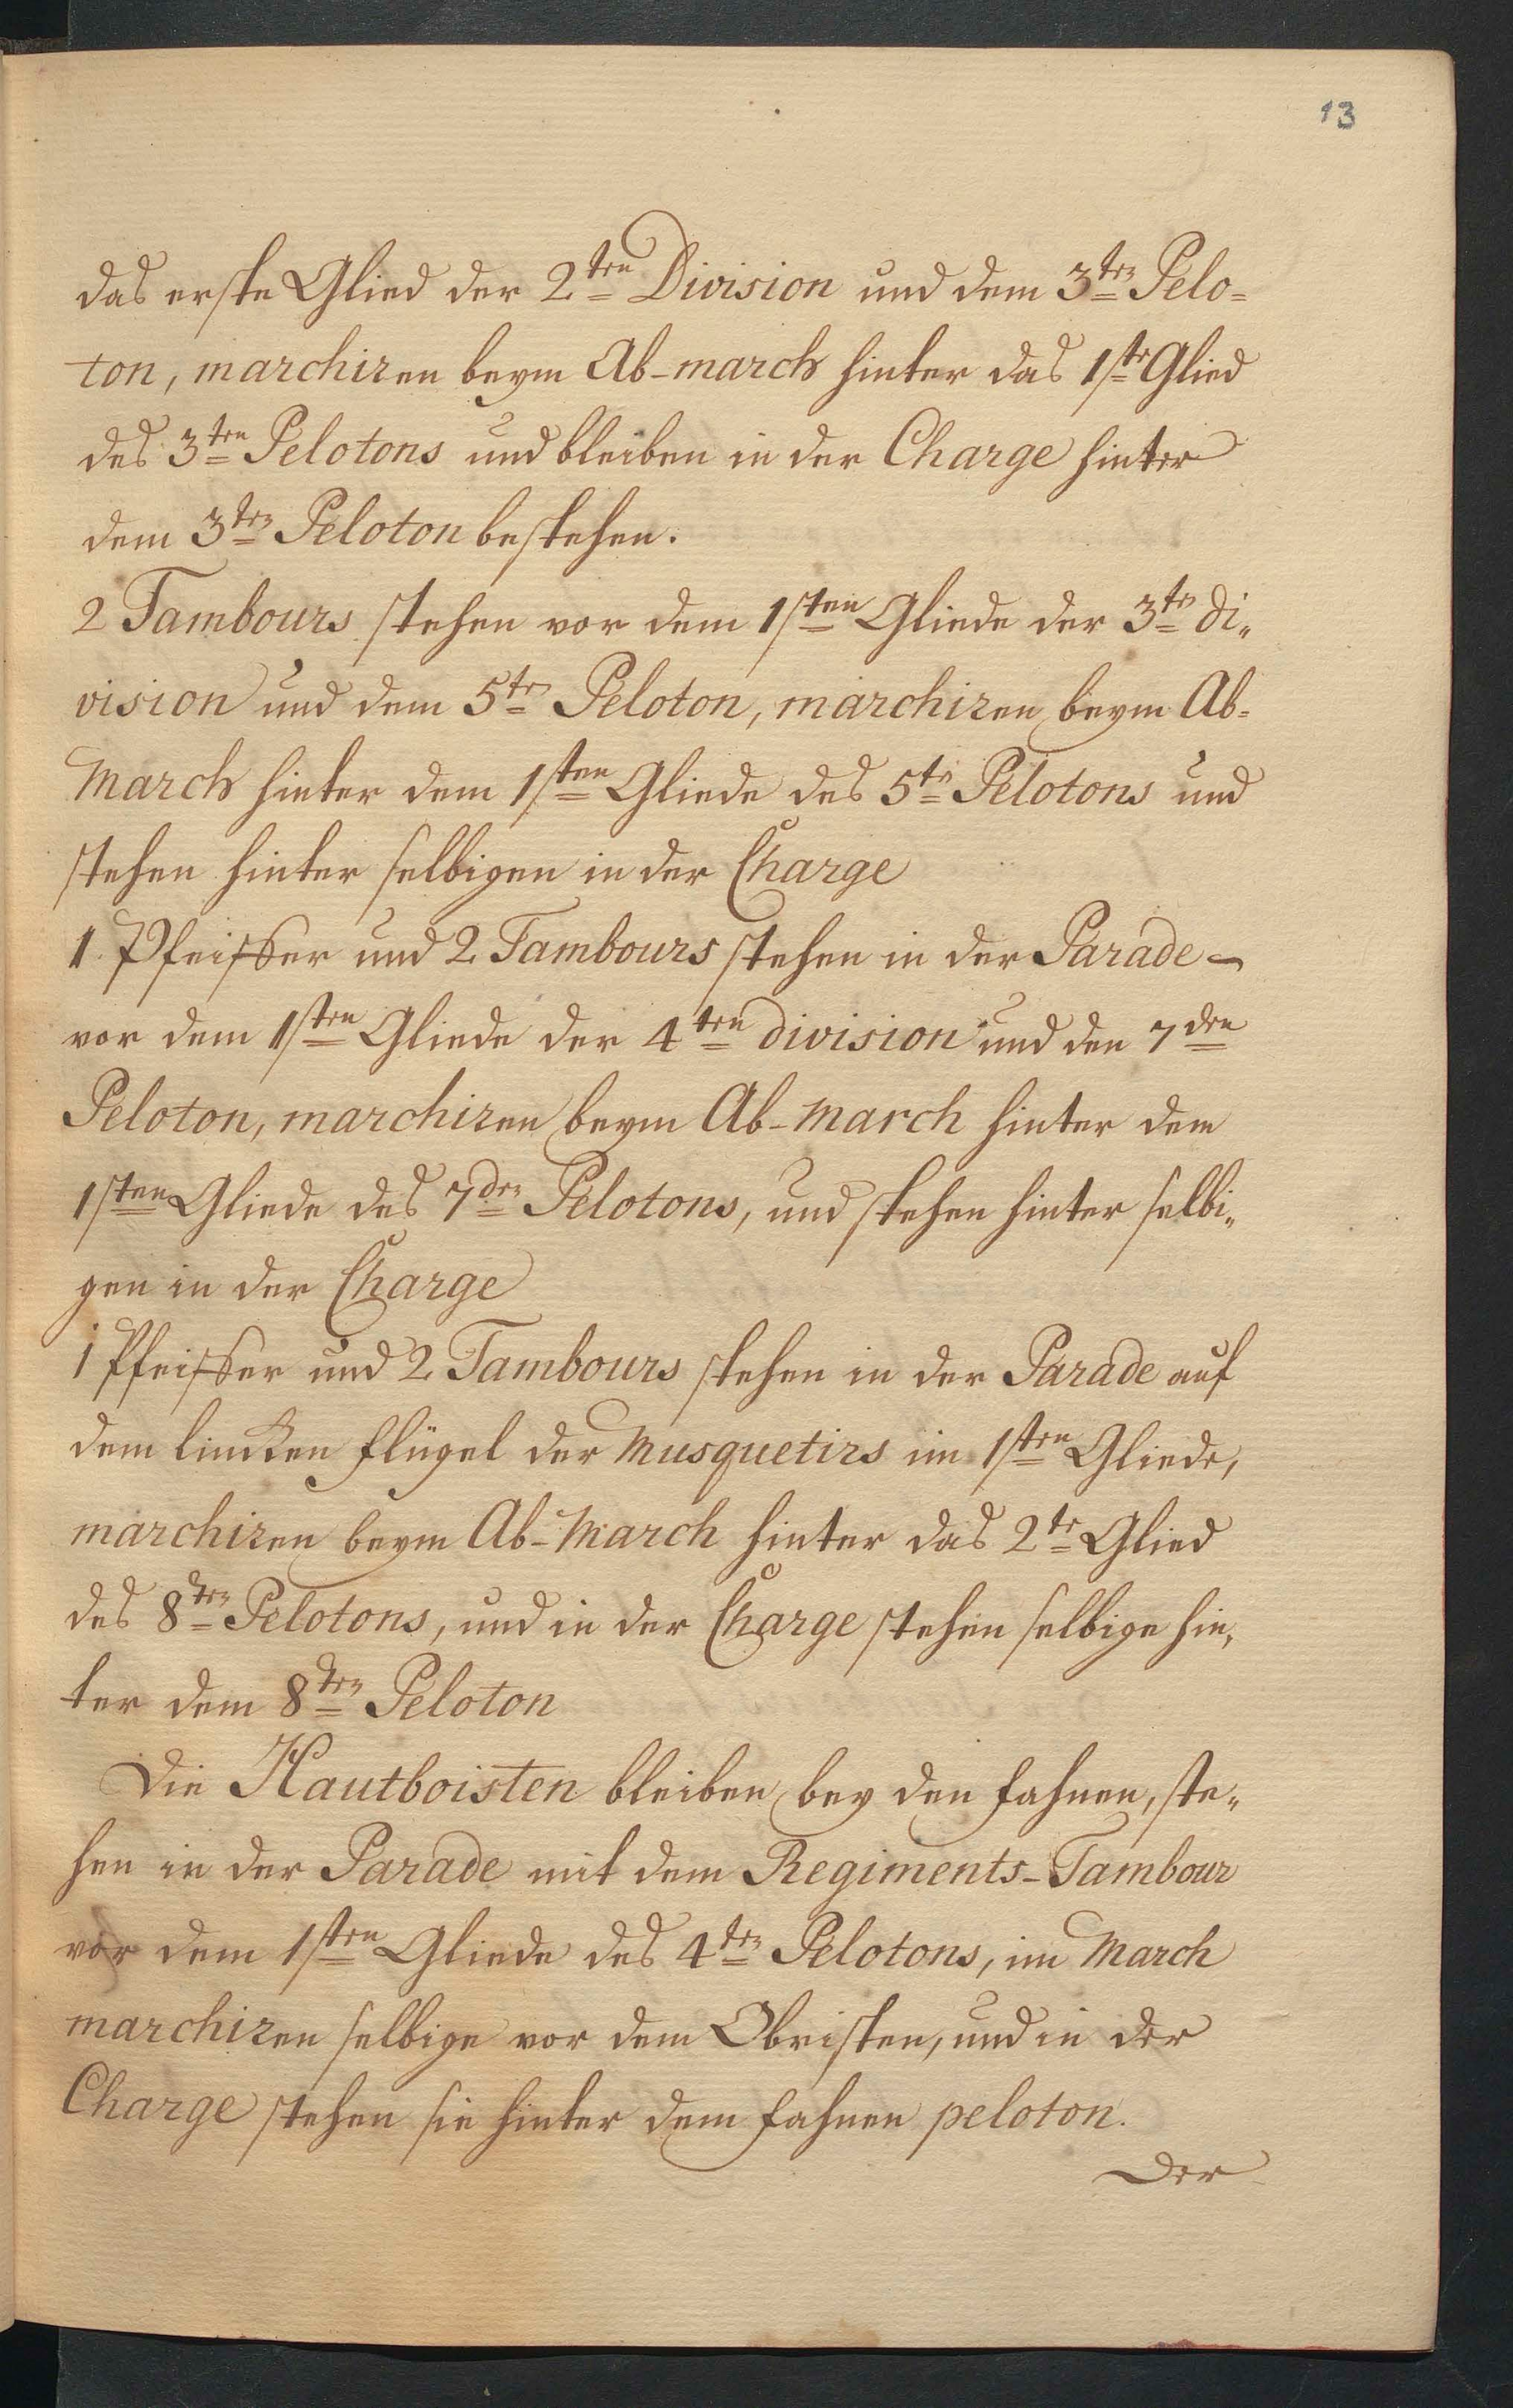 13
das erste Glied der 2ten Division und dem 3ten Pelo=
ton, marchiren beym Ab-march hinter das 1ste Glied
des 3ten Pelotons und bleiben in der Charge hinter
dem 3ten Peloton bestehen.
2 Tambours stehen vor dem 1sten Gliede der 3ten di„
vision und dem 5ten Peloton, marchiren beym Ab=
March hinter dem 1sten Gliede des 5ten Pelotons und
stehen hinter selbigen in der Charge
1. Pfeiffer und 2 Tambours stehen in der Parade
vor dem 1sten Gliede der 4ten division und den 7den
Peloton, marchiren beym Ab-March hinter dem
1sten Gliede des 7den Pelotons, und stehen hinter selbi„
gen in der Charge
1 Pfeiffer und 2 Tambours stehen in der Parade auf
dem lincken flügel der Musquetirs im 1sten Gliede,
marchiren beym Ab-March hinter das 2te Glied
des 8ten Pelotons, und in der Charge stehen selbige hin„
ter dem 8ten Peloton
Die Hautboisten bleiben bey den fahnen, ste„
hen in der Parade mit dem Regiments-Tambour
vor dem 1sten Gliede des 4ten Pelotons, im March
marchiren selbige vor dem Obristen, und in der
Charge stehen sie hinter dem fahnen peloton.
Der